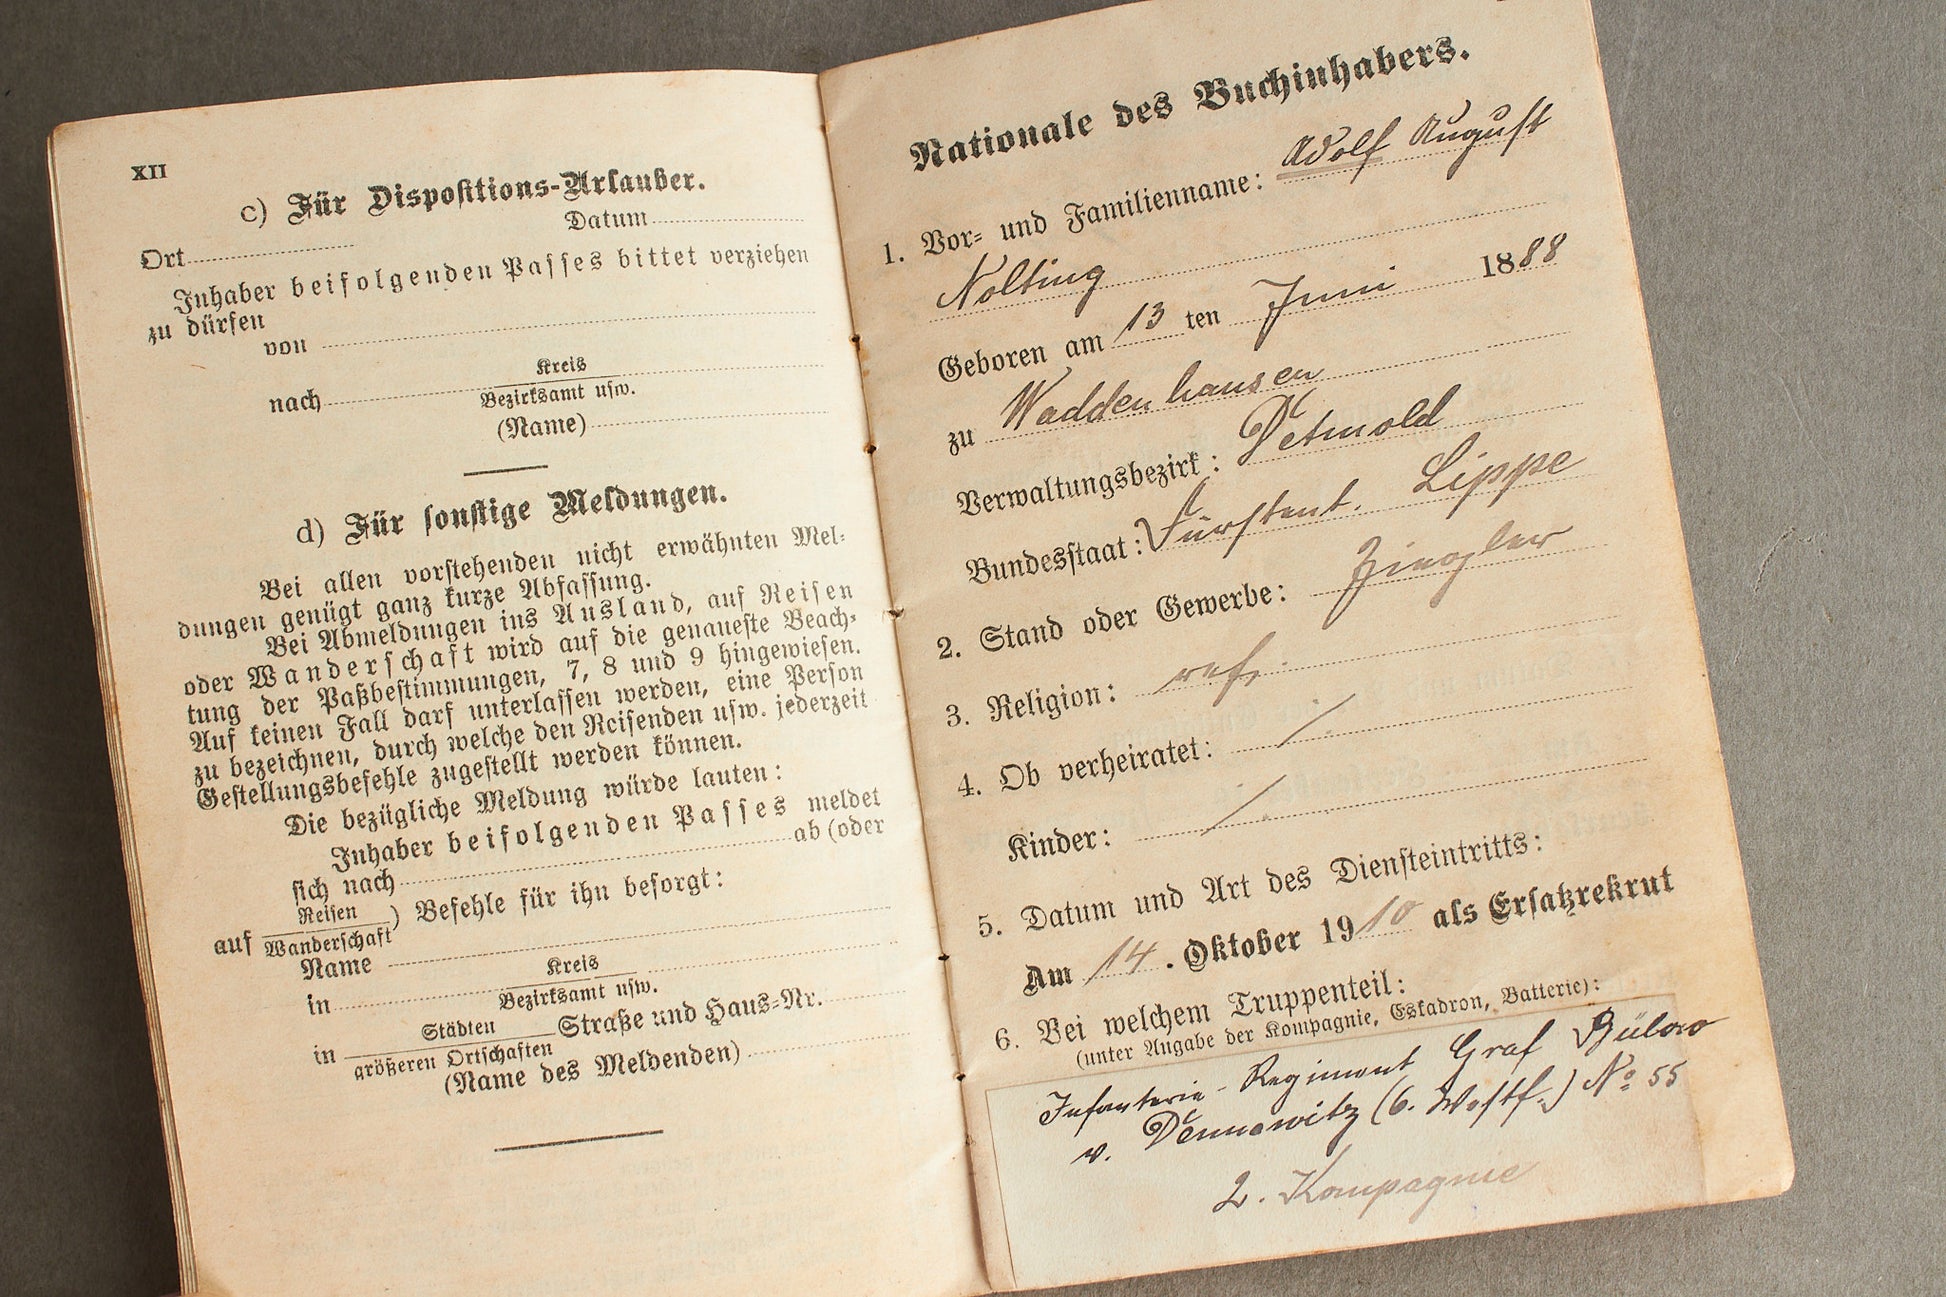 XII
c) Für Dispositions-Urlauber.
Ort Datum
Inhaber beifolgenden Passes bittet verziehen
zu dürfen
von
nach Kreis
Bezirksamt usw.
(Name)
d) Für sonstige Meldungen.
Bei allen vorstehenden nicht erwähnten Mel-
dungen genügt ganz kurze Abfassung.
Bei Abmeldungen ins Ausland, auf Reisen
oder Wanderschaft wird auf die genaueste Beach-
tung der Paßbestimmungen, 7, 8 und 9 hingewiesen.
Auf keinen Fall darf unterlassen werden, eine Person
zu bezeichnen, durch welche den Reisenden usw. jederzeit
Gestellungsbefehle zugestellt werden können.
Die bezügliche Meldung würde lauten:
Inhaber beifolgenden Passes meldet
sich nach ab (oder
auf Reisen
Wanderschaft) Befehle für ihn besorgt:
Name
in Kreis
Bezirksamt usw.
in Städten
größeren Ortschaften Straße und Haus-Nr.
(Name des Meldenden)
Nationale des Buchinhabers.
1. Vor- und Familienname: Adolf August
Nolting
Geboren am 13 ten Juni 1888
zu Waddenhausen
Verwaltungsbezirk: Detmold
Bundesstaat: Fürstent. Lippe
2. Stand oder Gewerbe: Ziegler
3. Religion: ref.
4. Ob verheiratet: /.
Kinder: /.
5. Datum und Art des Diensteintritts:
Am 14. Oktober 1910 als Ersatzrekrut
6. Bei welchem Truppenteil:
(unter Angabe der Kompagnie, Eskadron, Batterie):
Infanterie-Regiment Graf Bülow
v. Dennewitz (6. Westf.) No 55
2. Kompagnie